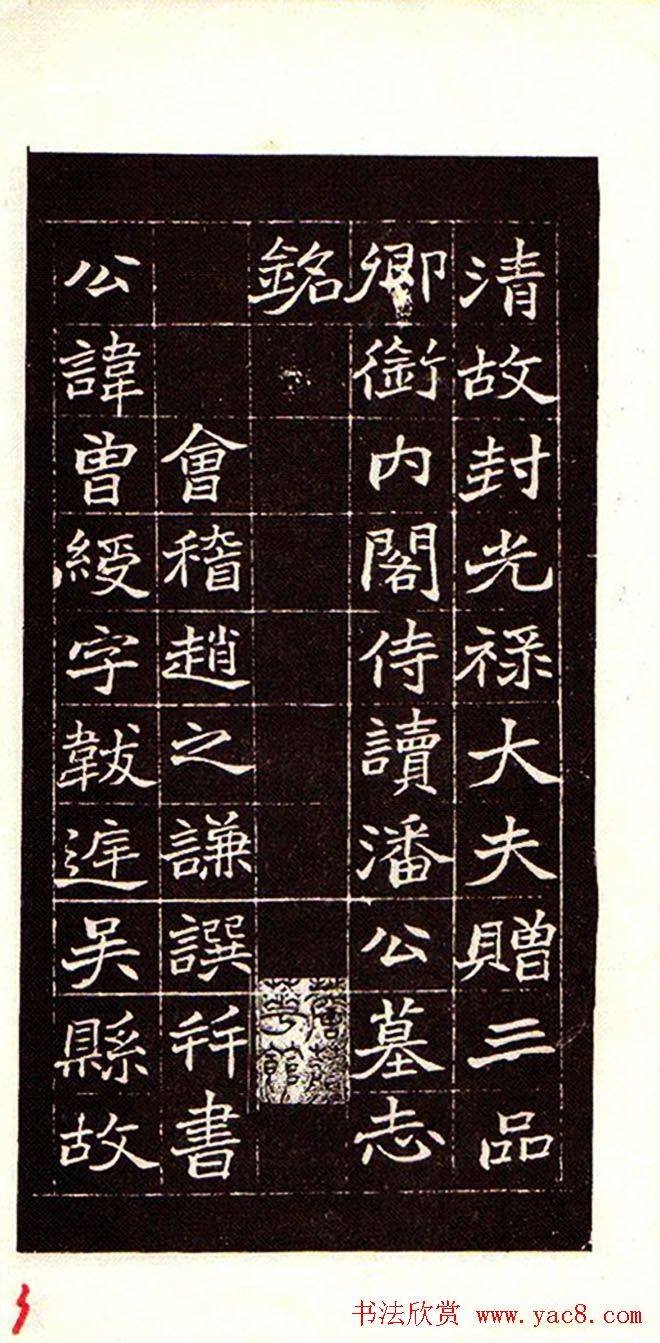 清故封光禄大夫贈三品
卿銜内閣侍讀潘公墓志
銘
會稽趙之謙譔并書
公諱曾綬字韍庭吳縣故
书法欣赏 www.yac8.com